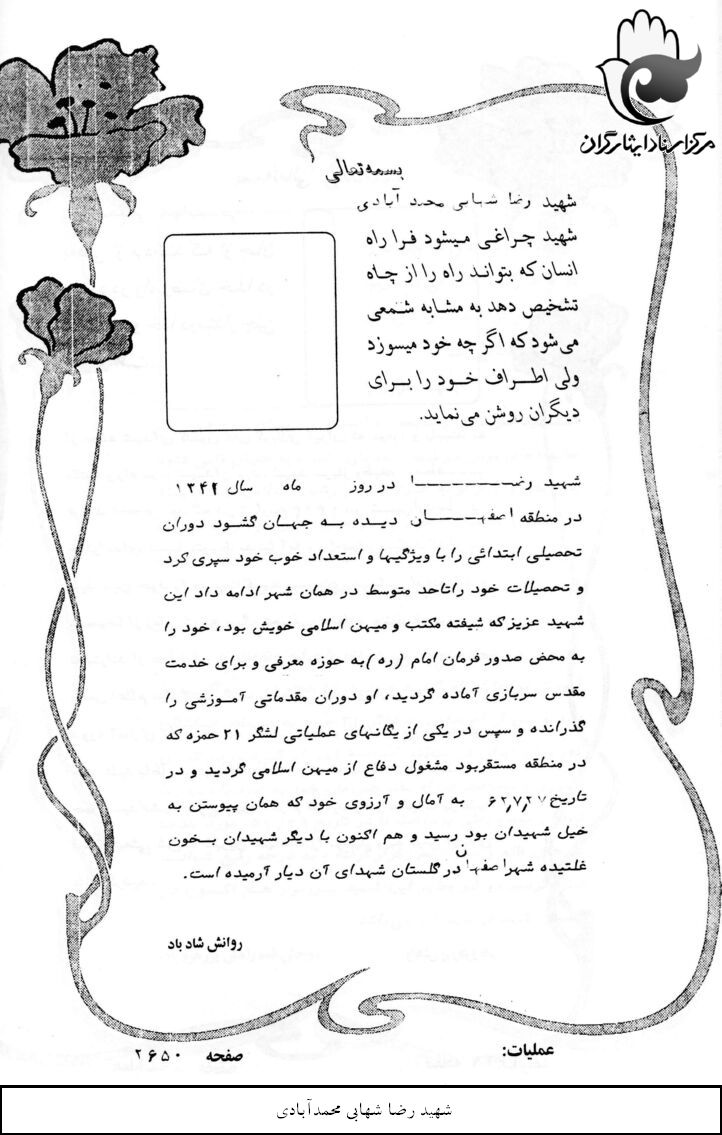 مرکز اسناد ایثارگران
بسمه تعالی
شهید رضا شهابی محمد آبادی
شهید چراغی میشود فرا راه
انسان که بتواند راه را از چاه
تشخیص دهد به مشابه شمعی
می‌شود که اگر چه خود میسوزد
ولی اطراف خود را برای
دیگران روشن می‌نماید.
شهید رضا در روز ماه سال ۱۳۴۲
در منطقه اصفهان دیده به جهان گشود دوران
تحصیلی ابتدائی را با ویژگیها و استعداد خوب خود سپری کرد
و تحصیلات خود راتاحد متوسط در همان شهر ادامه داد این
شهید عزیز که شیفته مکتب و میهن اسلامی خویش بود، خود را
به محض صدور فرمان امام (ره) به حوزه معرفی و برای خدمت
مقدس سربازی آماده گردید، او دوران مقدماتی آموزشی را
گذرانده و سپس در یکی از یگانهای عملیاتی لشگر ۲۱ حمزه که
در منطقه مستقربود مشغول دفاع از میهن اسلامی گردید و در
تاریخ ۶۲٫۷٫۲۷ به آمال و آرزوی خود که همان پیوستن به
خیل شهیدان بود رسید و هم اکنون با دیگر شهیدان بخون
غلتیده شهر اصفهان در گلستان شهدای آن دیار آرمیده است.
روانش شاد باد
عملیات: صفحه ۲۶۵۰
شهید رضا شهابی محمدآبادی